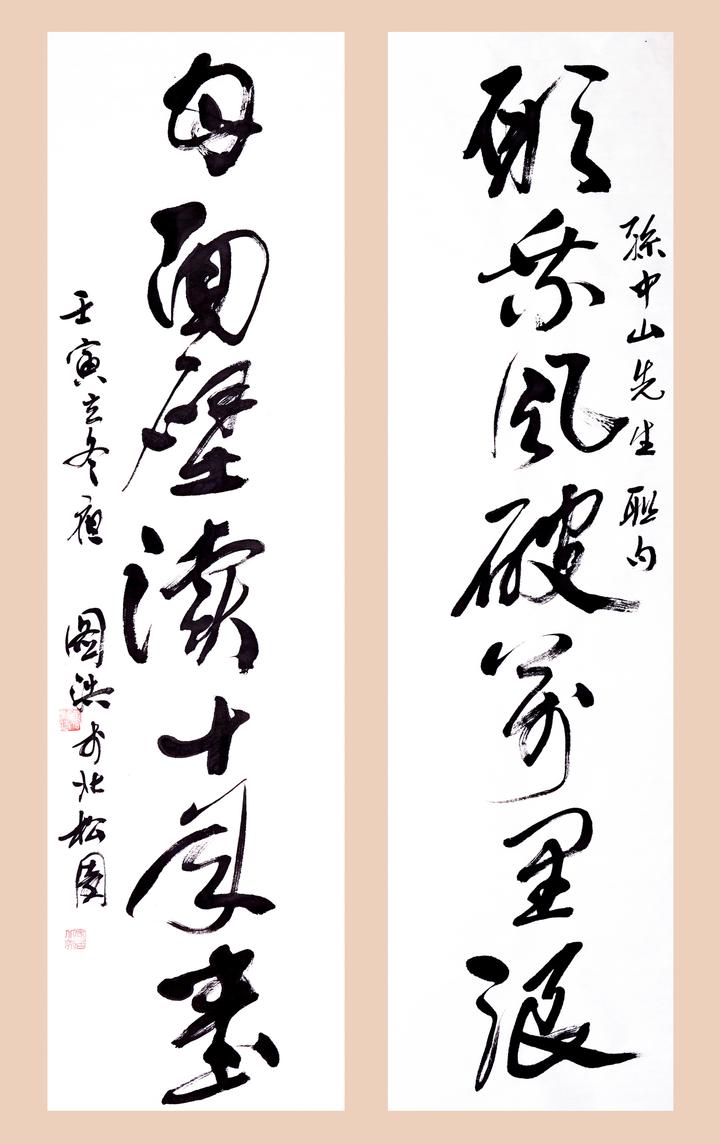 願乘風破萬里浪
孫中山先生聯句
甘面壁讀十年書
壬寅立冬夜
於北松園